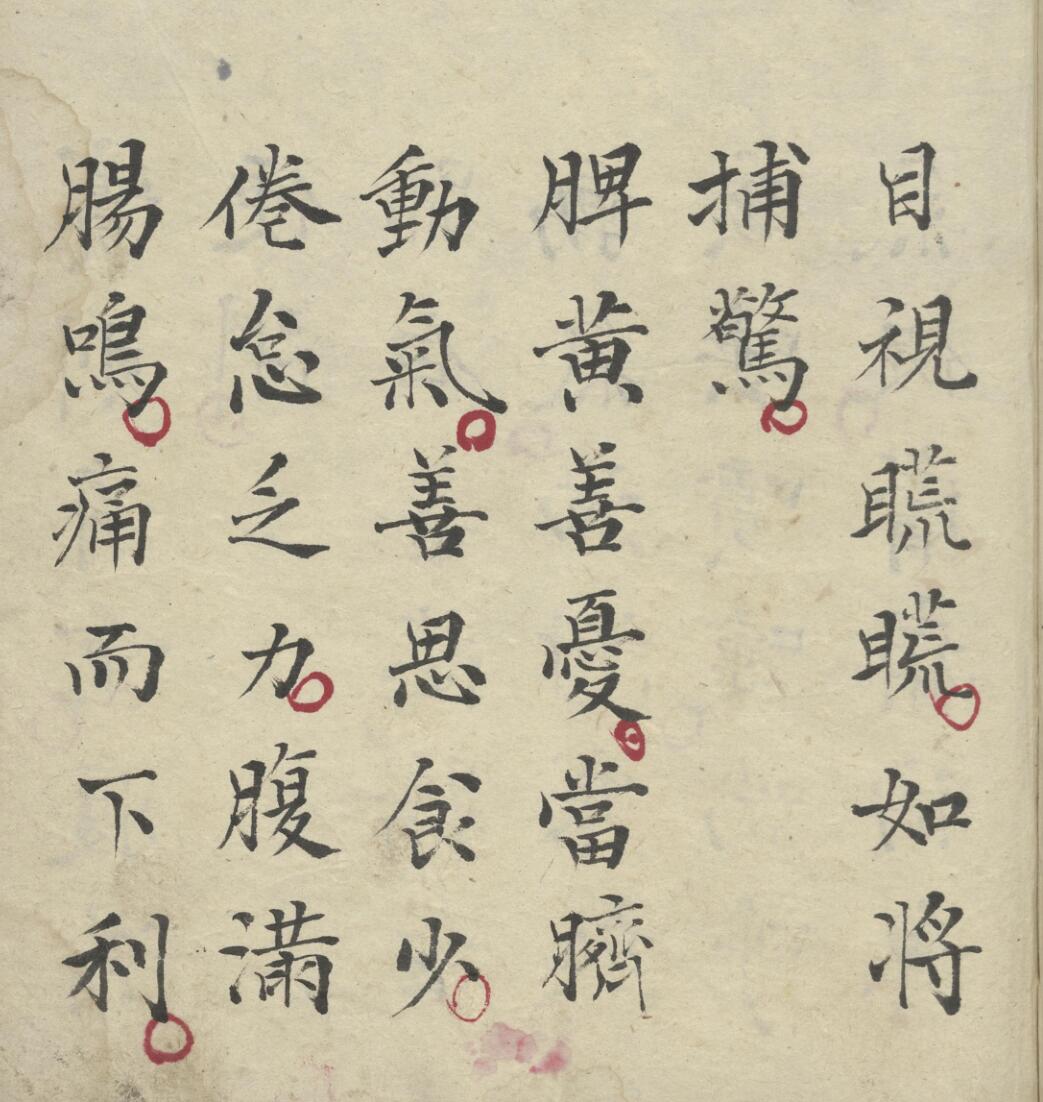 目視䀮䀮如將
捕驚
脾黄善憂當臍
動氣善思食少
倦怠乏力腹滿
腸鳴痛而下利